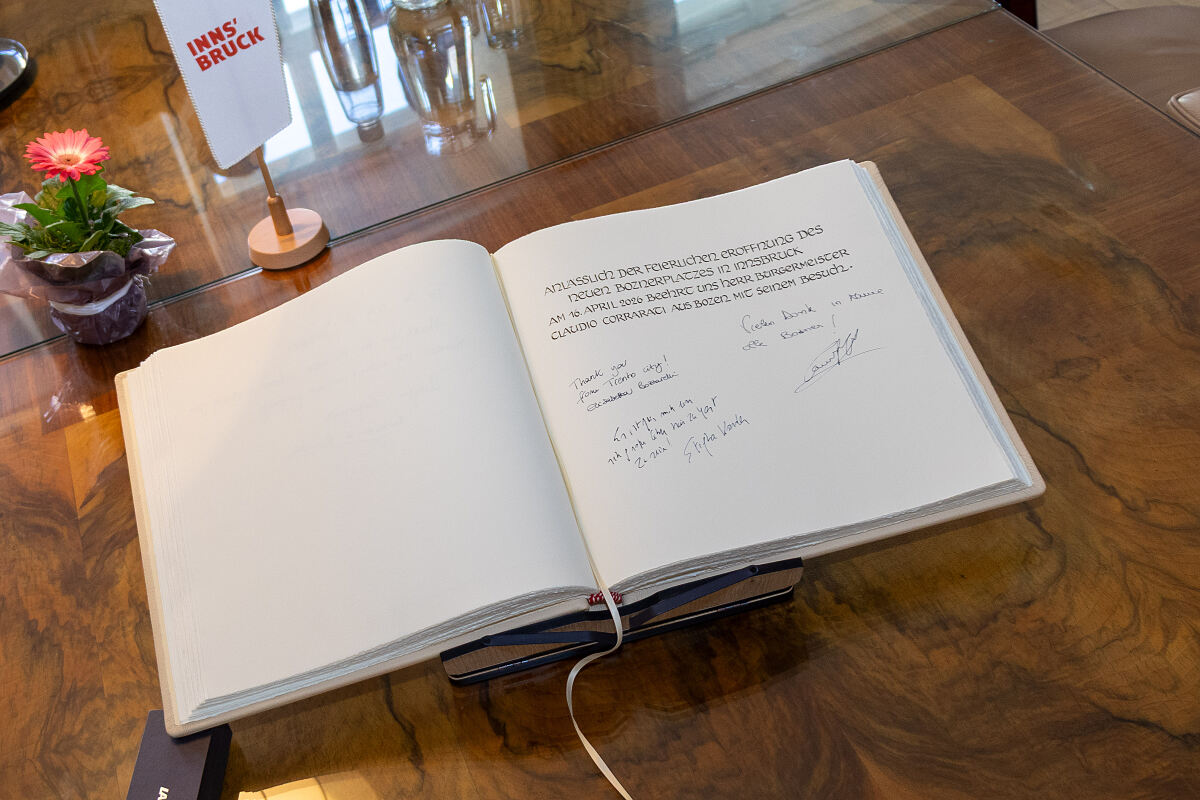 INNS'
BRUCK
ANLÄSSLICH DER FEIERLICHEN ERÖFFNUNG DES
NEUEN BOZNERPLATZES IN INNSBRUCK
AM 16. APRIL 2026 BEEHRT UNS HERR BÜRGERMEISTER
CLAUDIO CORRARATI AUS BOZEN MIT SEINEM BESUCH.
Vielen Dank in Name
alle Bozner!
Thank you
from Trento city!
Es ist für mich ein
zu sein!